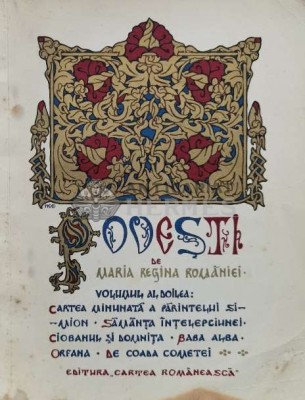 POVEȘTI
DE
MARIA REGINA ROMÂNIEI·
VOLUMUL AL DOILEA:
CARTEA MINUNATĂ A PĂRINTELUI SI-
-MION · SĂMÂNȚA ÎNȚELEPCIUNEI·
CIOBANUL ȘI DOMNIȚA · BABA ALBA·
ORGANA · DE COADA COMETEI
EDITURA „CARTEA ROMÂNEASCĂ"